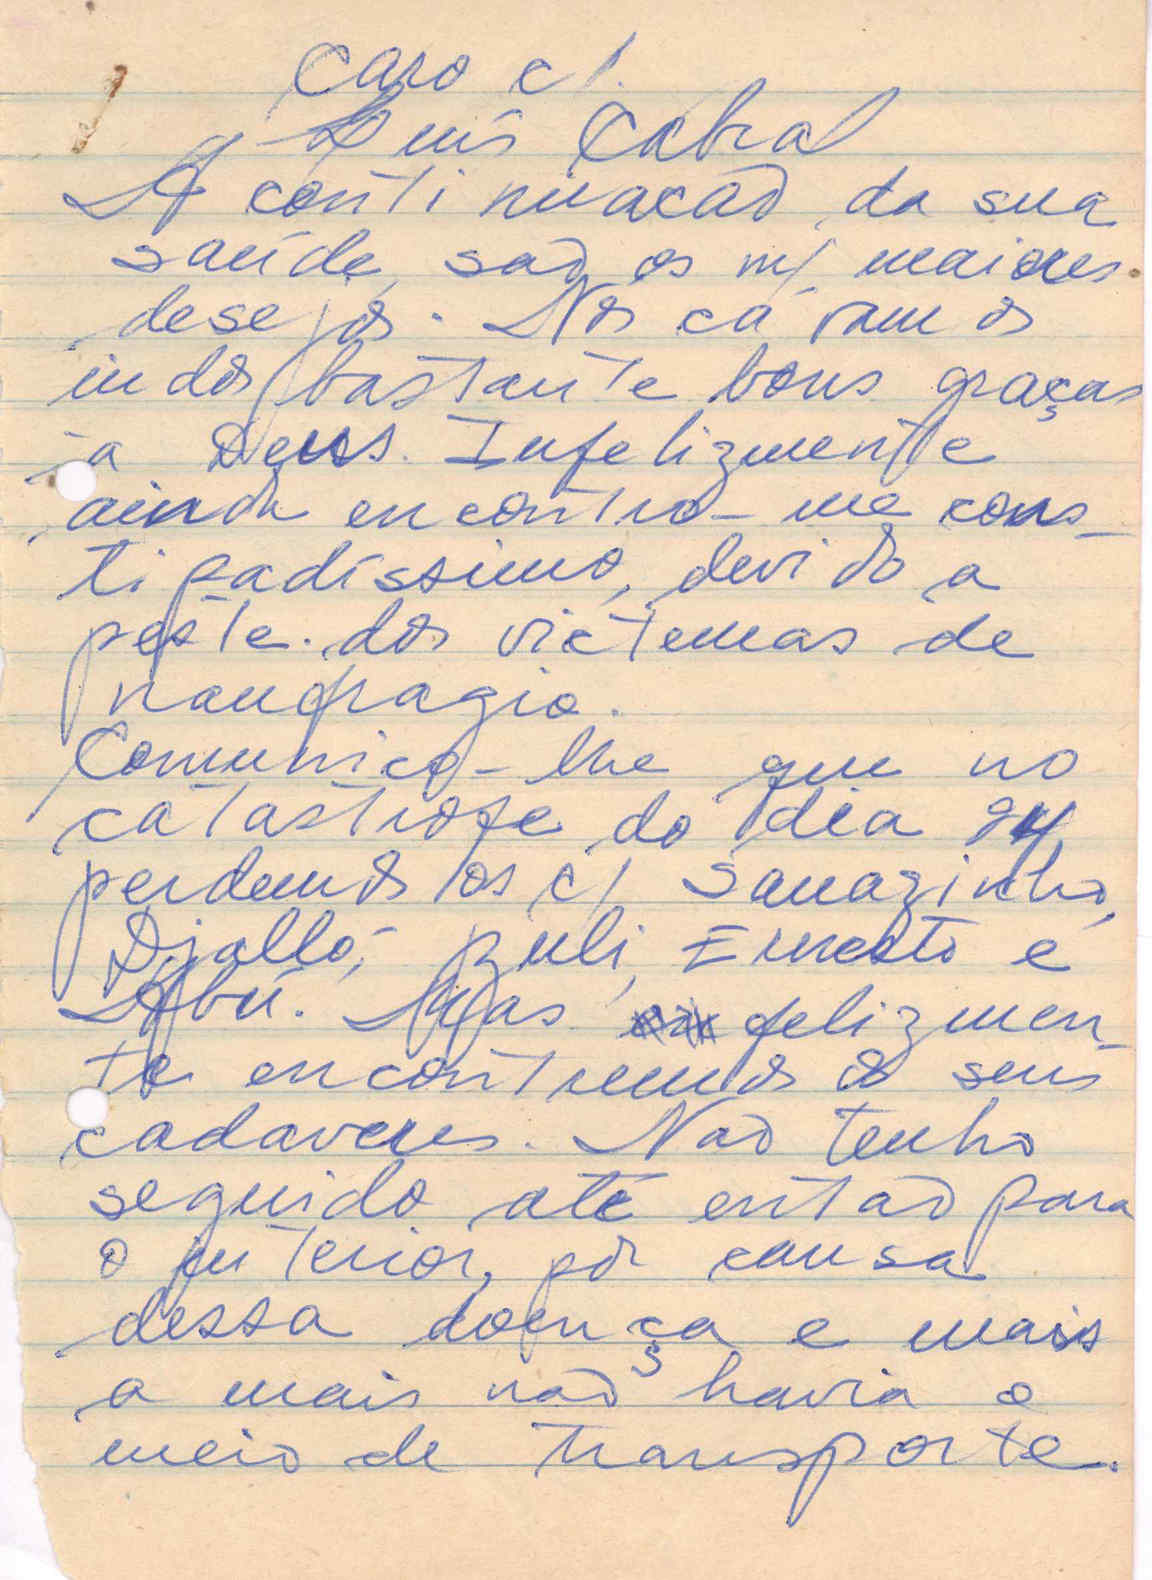 Caro c/.
Luís Cabral
A continuacão da sua
saúde, são os m/ maiores
desejos. Nós cá vamos
indos bastante bons graças
a Deus. Infelizmente
ainda encontro-me cons-
tipadíssimo, devido a
peste dos victemas de
naufragio.
Comunico-lhe que no
catastrofe do dia 24
perdemos os c/ Sanazinho,
Djalló, Zuli, Ernesto e
Abú. Mas felizmen-
te encontremos os seus
cadaveres. Não tenho
seguido até então para
o interior, por causa
dessa doença e mais
a mais não havia o
meio de transporte.